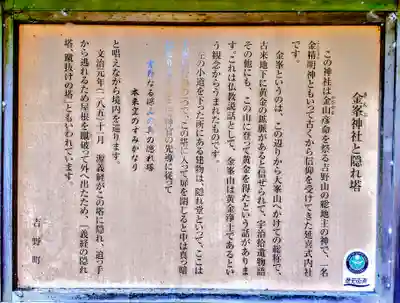 金峯神社と隠れ塔
この神社は金山彦命を祭る吉野山の総地主の神で、一名
金精明神ともいって古くから信仰を受けてきた延喜式内社
です。
金峯というのは、この辺りから大峯山へかけての総称で、
古来地下に黄金の鉱脈があると信ぜられて、宇治拾遺物語
その他にも、この山に登って黄金を得たという話がありま
す。これは仏教説話として、金峯山は黄金浄土であるとい
う観念からうまれたものです。
左の小道を下った所にある建物は、隠れ堂といって、ここは
で、この塔に入って扉を閉じると中は真っ暗
の先導に従って
奥の隠れ塔
本来空のすみかなり
と唱えながら境内を巡ります。
文治元年(一一八五)十一月 源義経がこの塔に隠れ、追っ手
から逃れるため屋根を蹴破って外へ出たため、「義経の隠れ
塔、蹴抜けの塔」ともいわれています。
吉野町